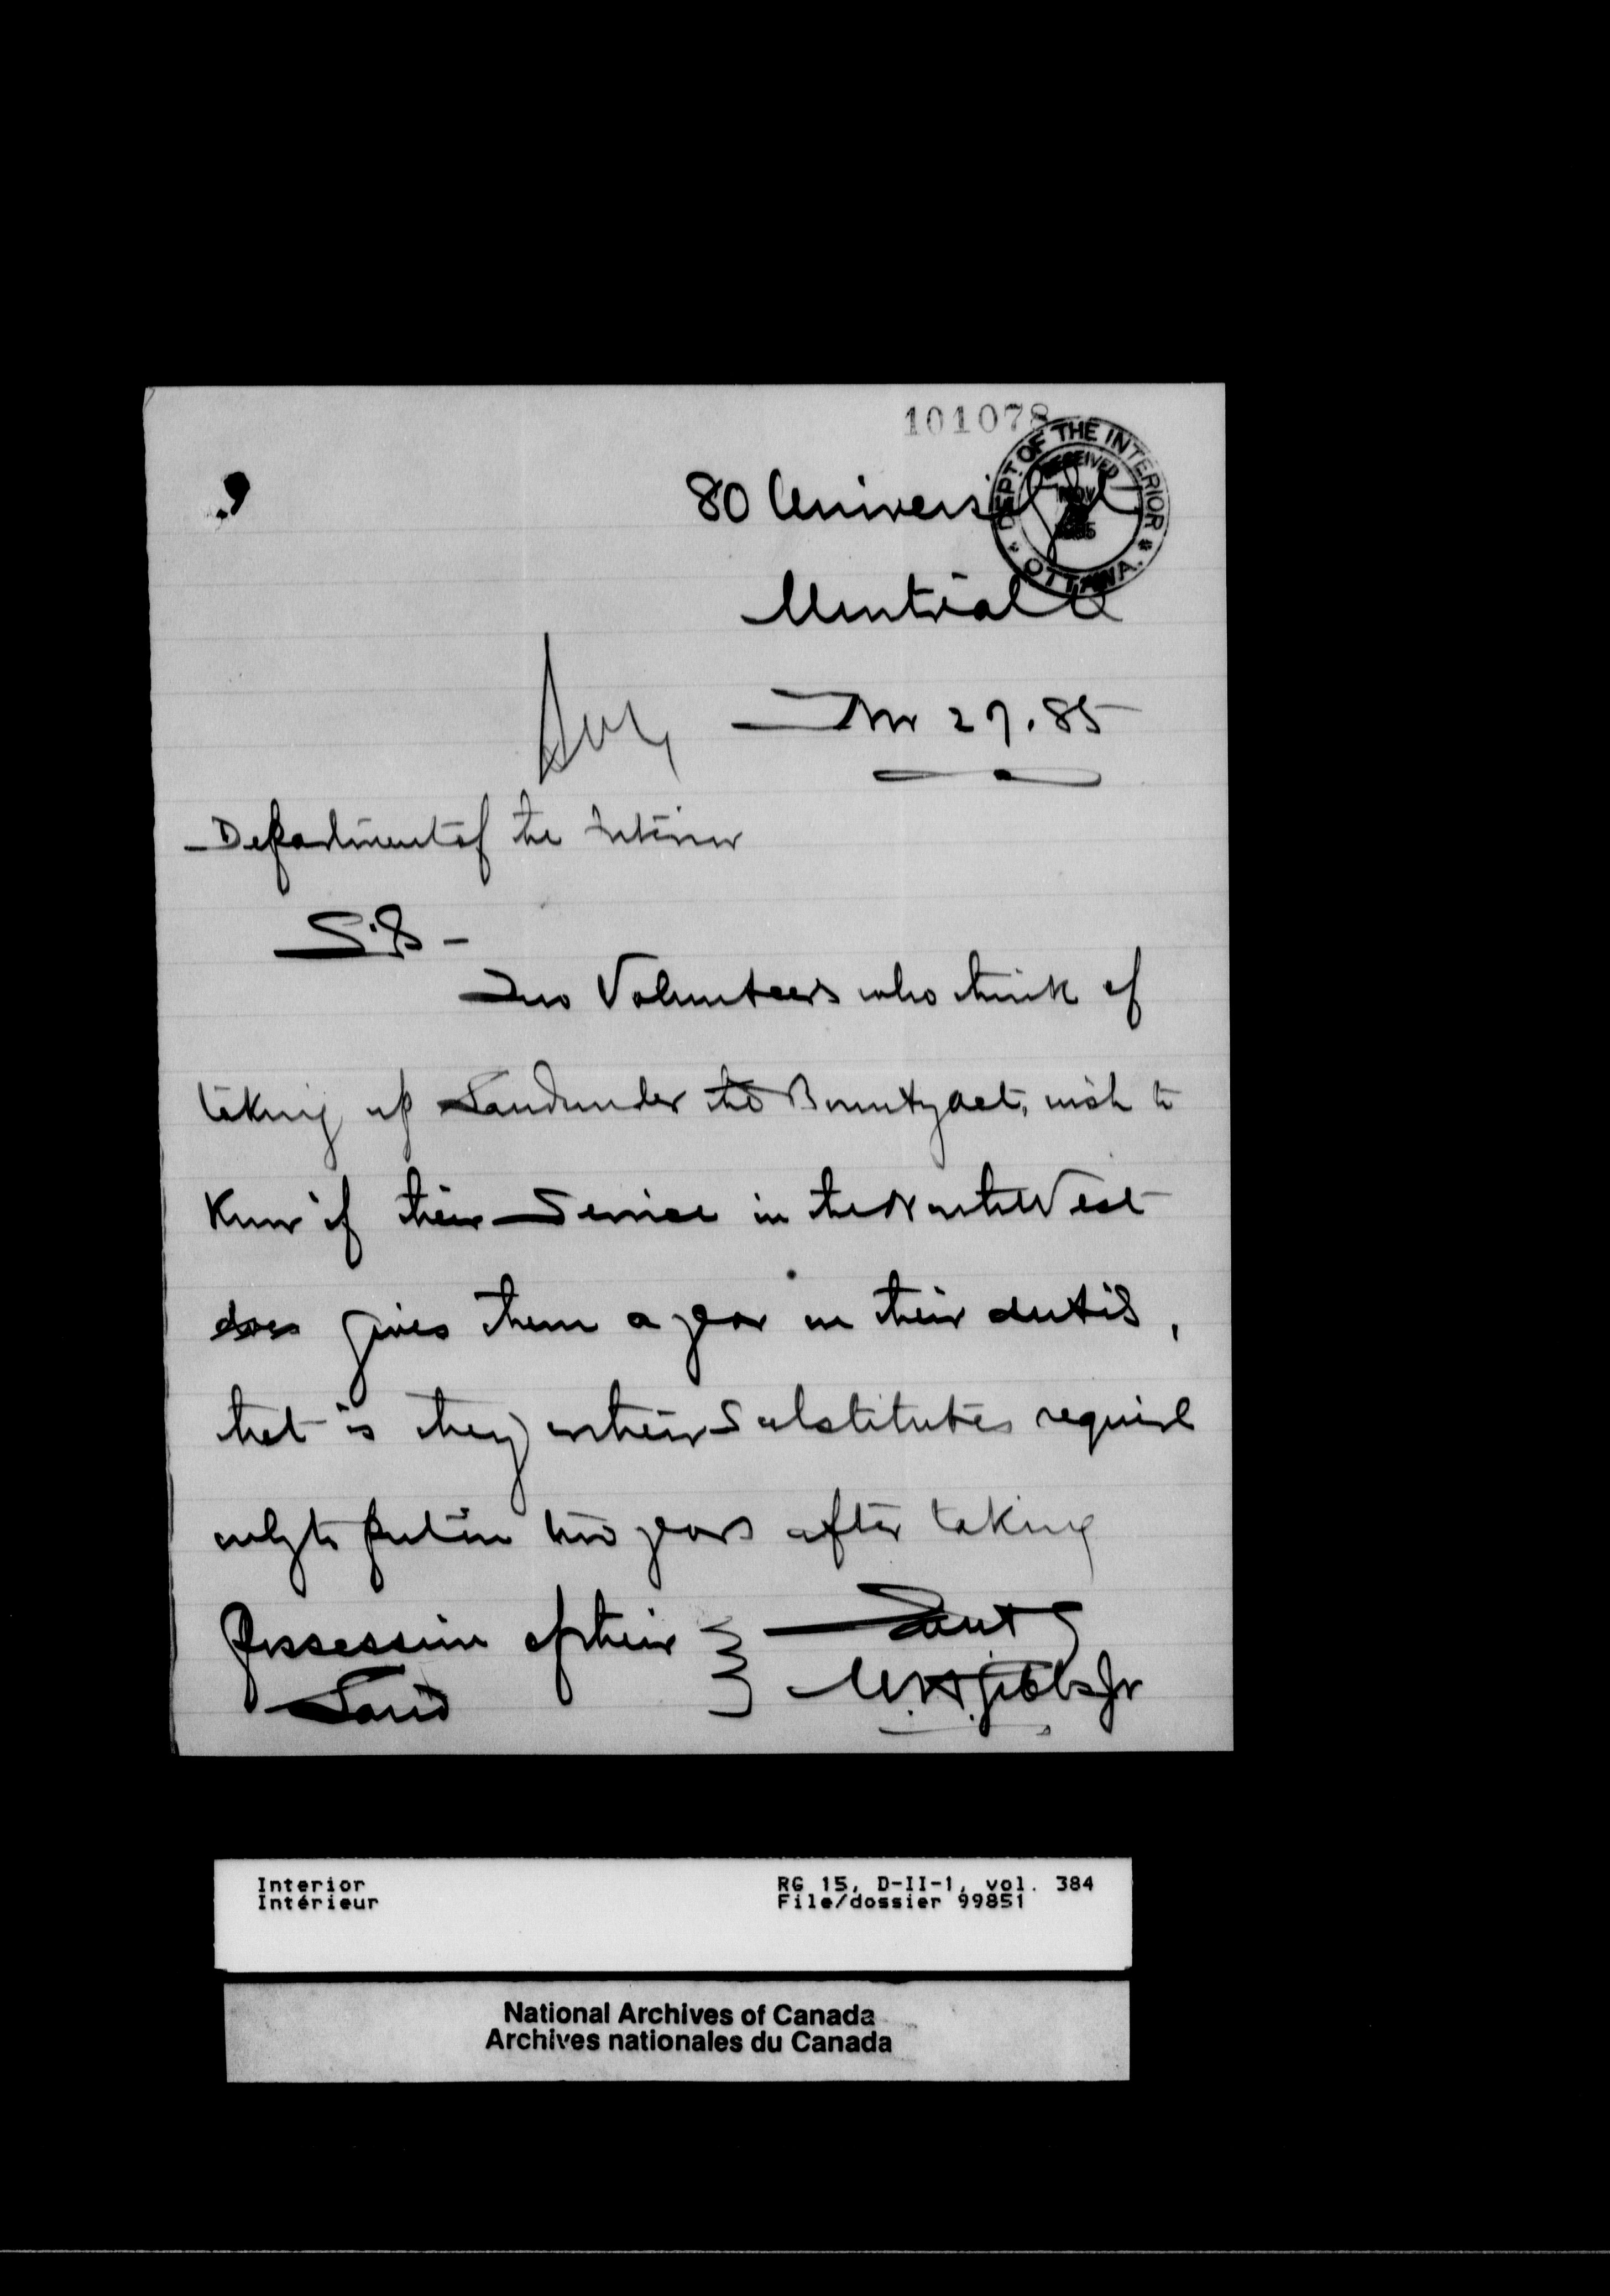 101078
DEPT. OF THE INTERIOR
RECEIVED
NOV
1885
OTTAWA.
80 University
Montreal
Nov 27. 85
Department of the Interior
Sir -
Two Volunteers who think of
taking up Land under the Bounty act, wish to
Know if their Service in the North West
does gives them a year on their duties,
that is they or their Substitutes require
only to put in two years after taking
possession of their
Land
W.H. Gibbs Jr
Interior
Intérieur
RG 15, D-II-1, vol. 384
File/dossier 99851
National Archives of Canada
Archives nationales du Canada